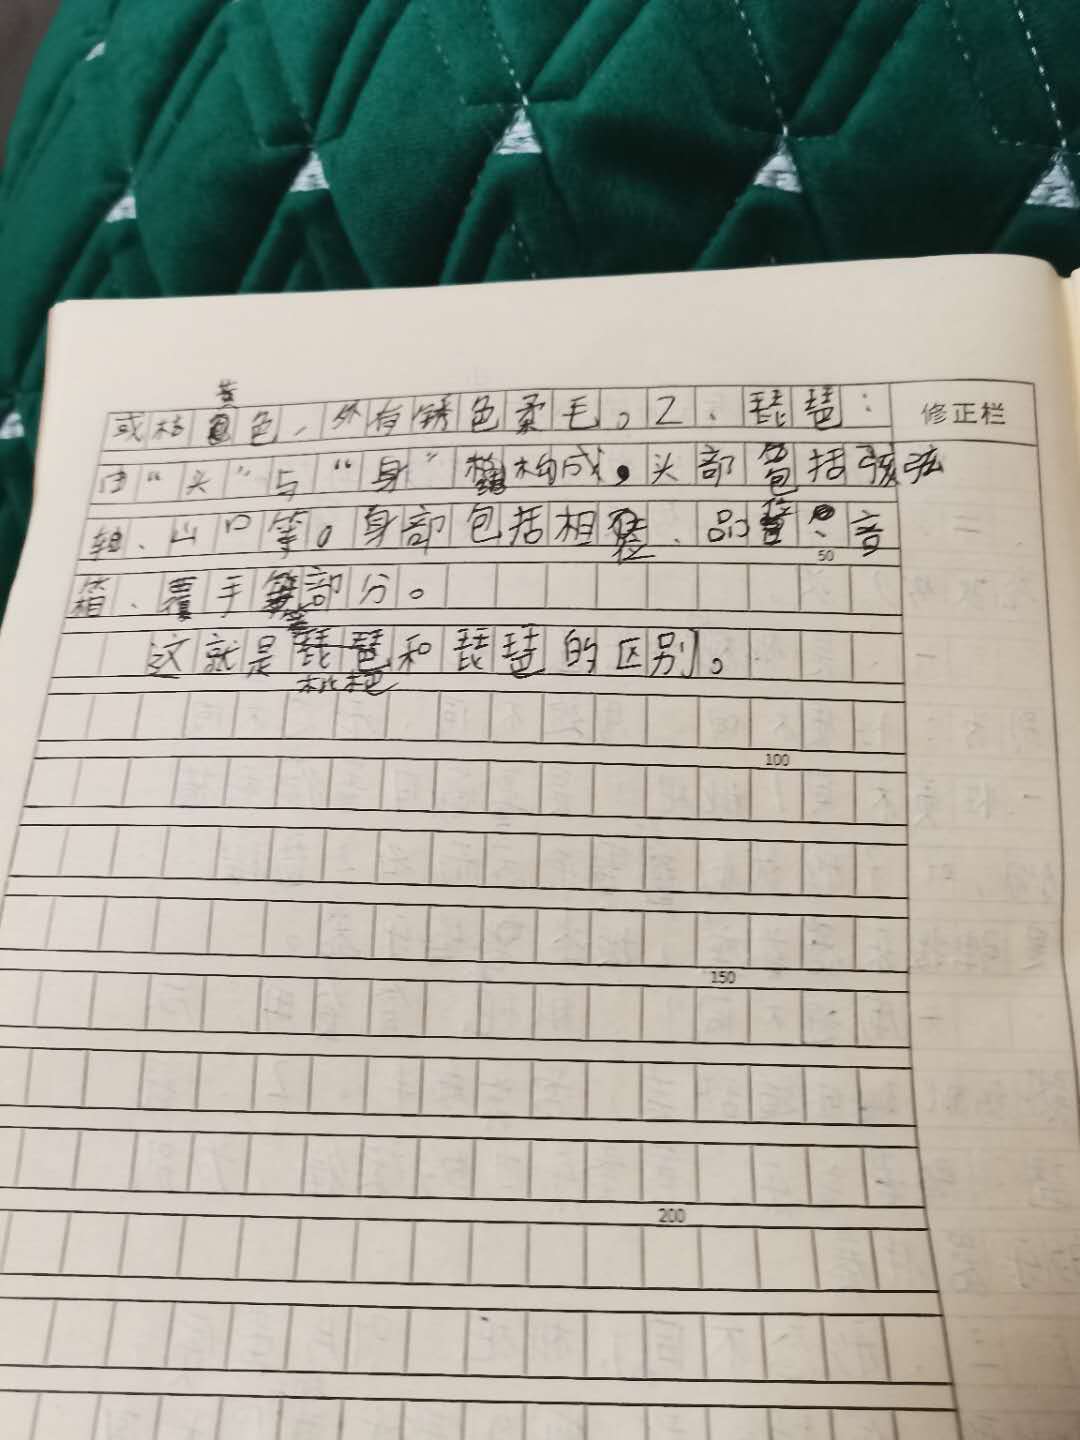 或桔黄色,外有锈色柔毛。2、琵琶:
由“头”与“身”构成,头部包括弦弦
轴、山口等。身部包括相、品、音
箱、覆手等部分。
这就是枇杷和琵琶的区别。
修正栏
50
100
150
200